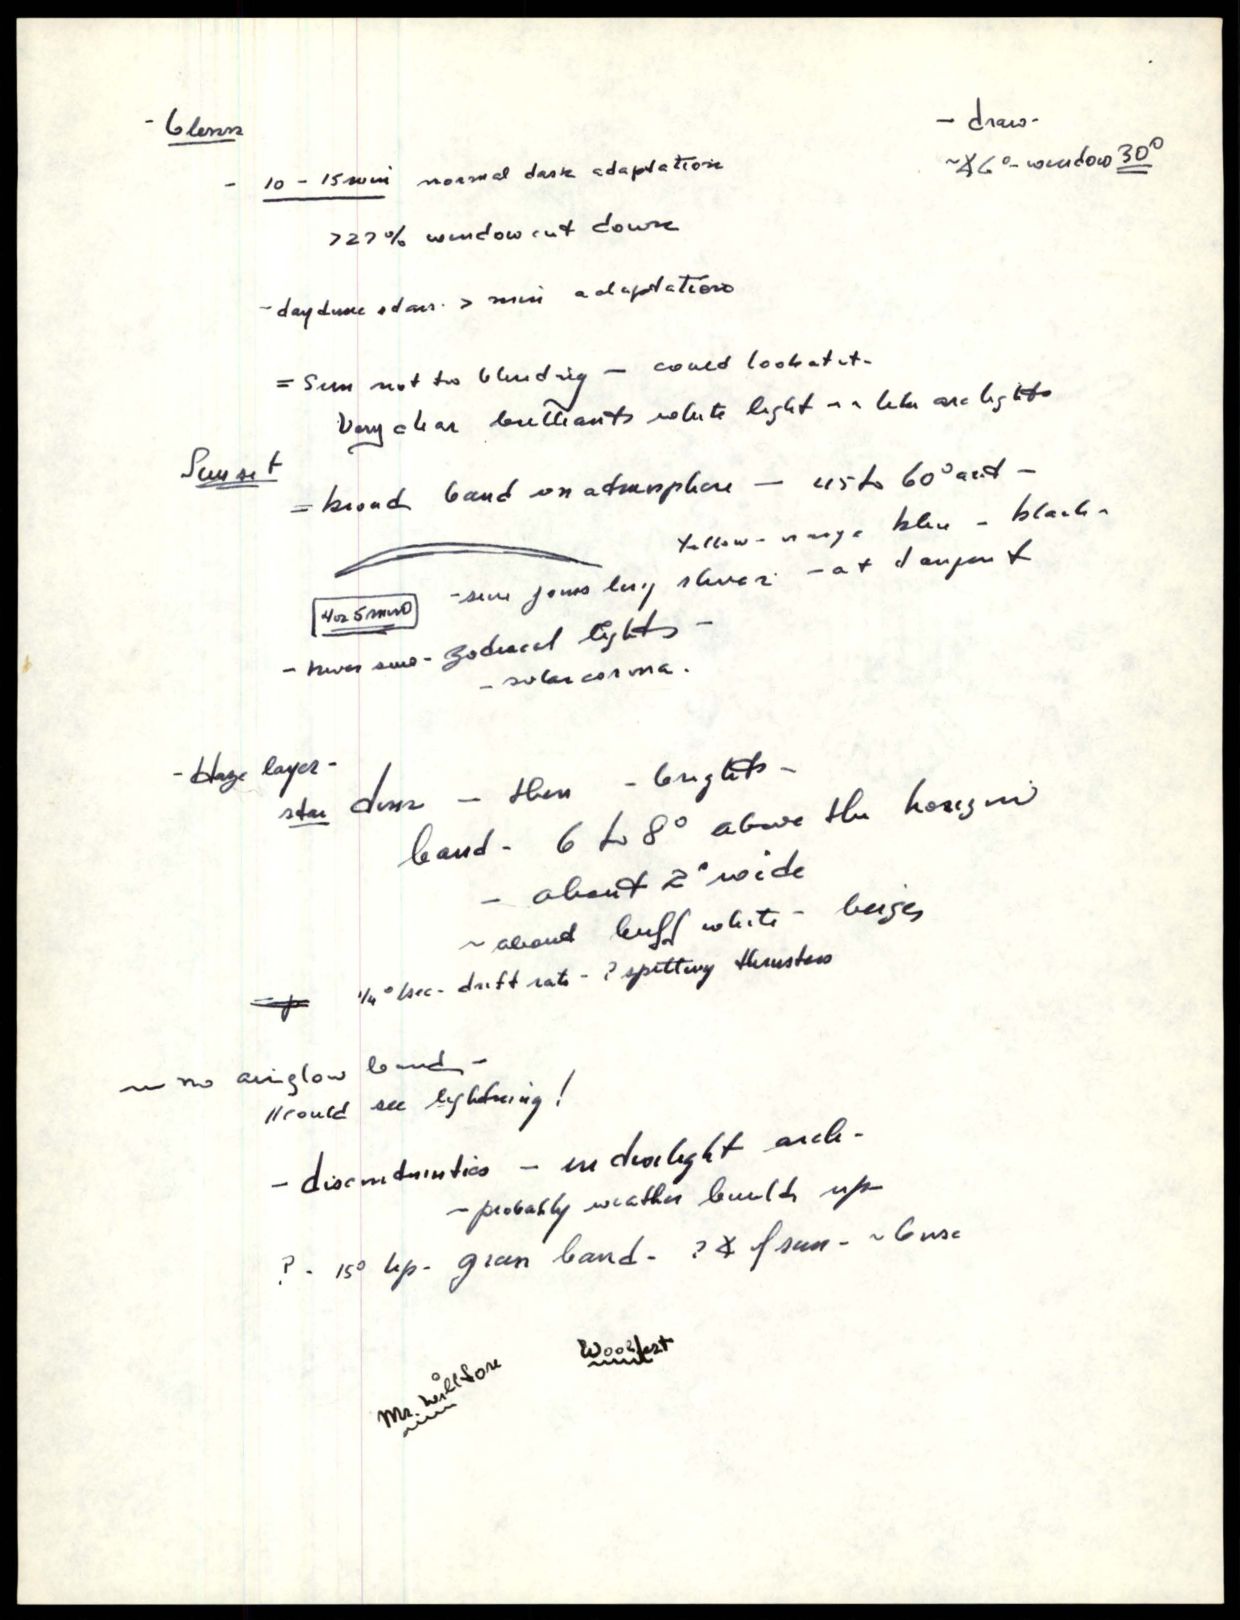 - Glenn
- draw -
~∡6° - window 30°
- 10 - 15 min normal dark adaptation
>27% window cut down
- daytime stars > min adaptation
= Sun not to blinding - could look at it -
Very clear brilliants white light - like arc lights
Sunset
= broad band on atmosphere - 45 to 60° arct -
Yellow - orange blue - black -
- sun joins long sliver - at tangent
4 or 5 min
- never saw - zodiacal lights -
- solar corona.
- Haze layer -
star dim - then - brights -
band - 6 to 8° above the horizon
- about 2° wide
~ about buff white - beiges
1/4°/sec - drift rate - ? spitting thrusters
~ no airglow band -
could see lightning!
- discontinuties - in twilight arch -
- probably weather builds up
? - 15° up - green band - ? ∡ of sun -
Mr.